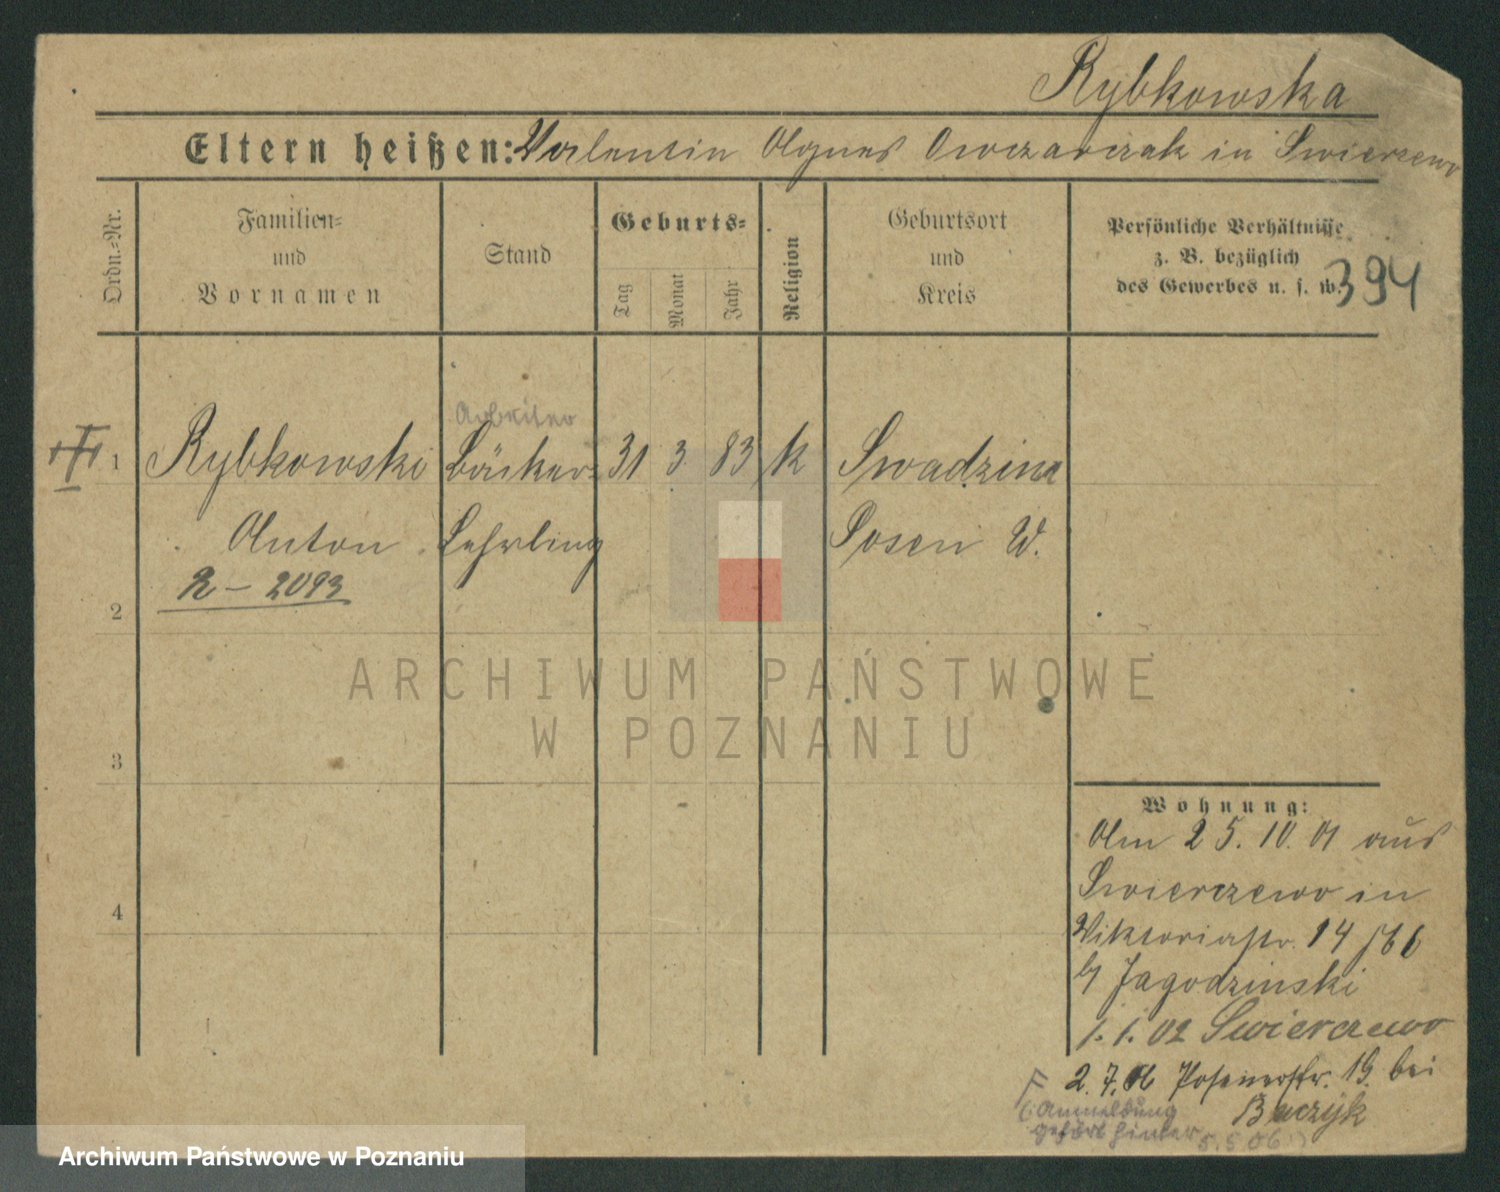 Rybkowska
Eltern heißen: Valentin Agnes Owczarczak in Swierczewo
Ordn.-Nr.
Familien-
und
Vornamen
Stand
Geburts-
Tag
Monat
Jahr
Religion
Geburtsort
und
Kreis
Persönliche Verhältnisse
z. B. bezüglich
des Gewerbes u. s. w.
394
Arbeiter
1 Rybkowski Bäcker- 31 3 83 k Swadzim
Anton Lehrling Posen W.
R – 2093
2
3
4
Wohnung:
Am 25.10.01 aus
Swierczewo in
Viktoriastr. 14
b/ Jagodzinski
1.1.02 Swierczewo
2.7.06 Posenerstr. 19. bei
Baczyk
Anmeldung
gehört hinter 5.5.06
ARCHIWUM PAŃSTWOWE
W POZNANIU
Archiwum Państwowe w Poznaniu